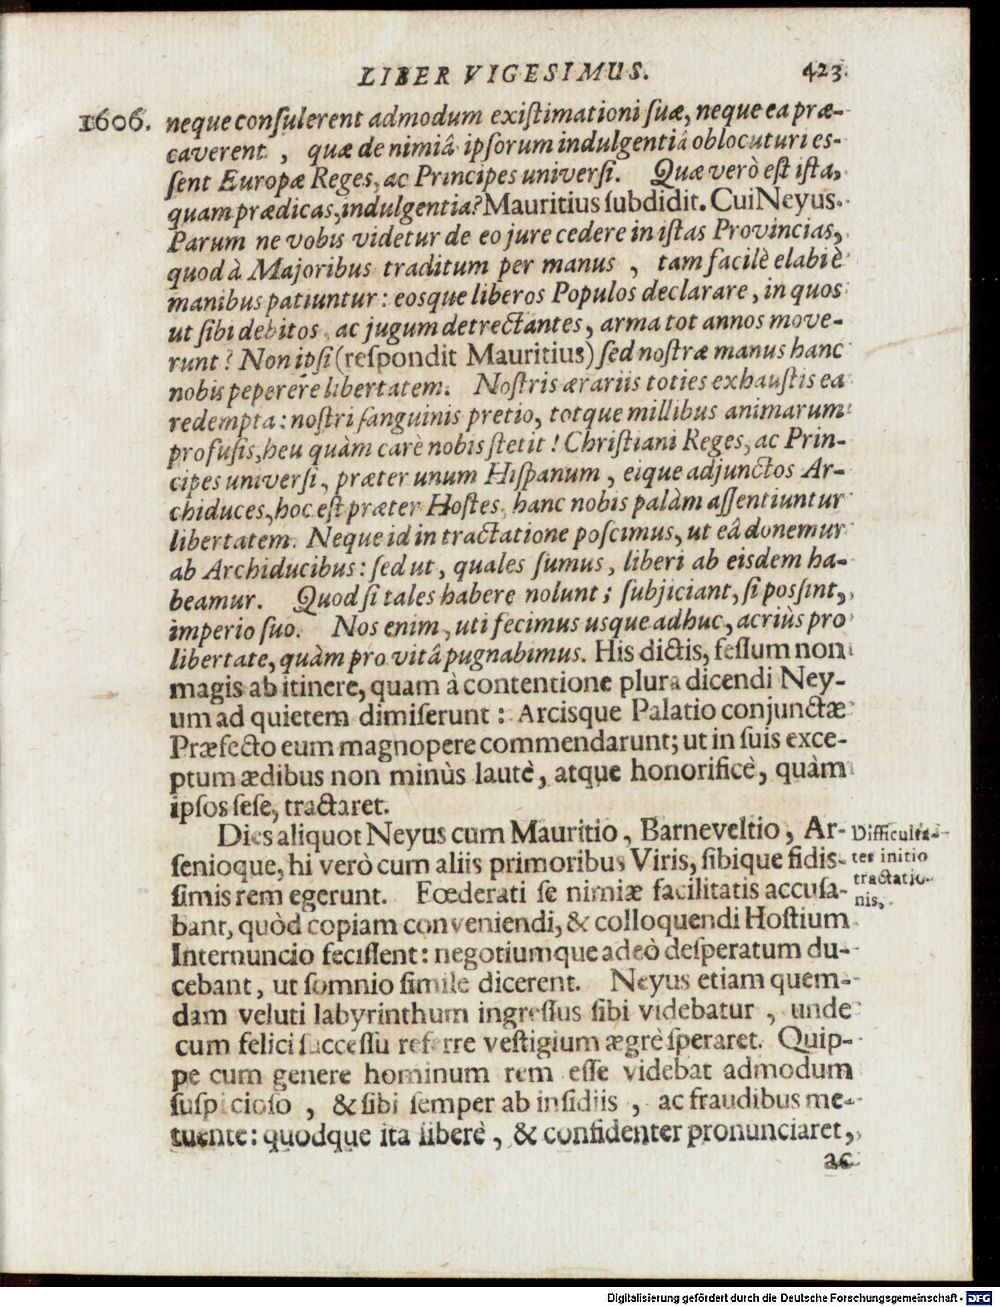 LIBER VIGESIMUS. 423.
1606. neque consulerent admodum existimationi suæ, neque ea præ-
caverent, quæ de nimiâ ipsorum indulgentiâ oblocuturi es-
sent Europæ Reges, ac Principes universi. Quæ verò est ista,
quam prædicas, indulgentia? Mauritius subdidit. Cui Neyus.
Parum ne vobis videtur de eo jure cedere in istas Provincias,
quod à Majoribus traditum per manus, tam facilè elabi è
manibus patiuntur: eosque liberos Populos declarare, in quos
ut sibi debitos, ac jugum detrectantes, arma tot annos move-
runt? Non ipsi (respondit Mauritius) sed nostræ manus hanc
nobis peperere libertatem. Nostris ærariis toties exhaustis ea
redempta: nostri sanguinis pretio, totque millibus animarum
profusis, heu quàm carè nobis stetit! Christiani Reges, ac Prin-
cipes universi, præter unum Hispanum, eique adjunctos Ar-
chiduces, hoc est præter Hostes, hanc nobis palàm assentiuntur
libertatem. Neque id in tractatione poscimus, ut eâ donemur
ab Archiducibus: sed ut, quales sumus, liberi ab eisdem ha-
beamur. Quod si tales habere nolunt; subjiciant, si possint,
imperio suo. Nos enim, uti fecimus usque adhuc, acriùs pro
libertate, quàm pro vitâ pugnabimus. His dictis, fessum non
magis ab itinere, quam à contentione plura dicendi Ney-
um ad quietem dimiserunt: Arcisque Palatio conjunctæ
Præfecto eum magnopere commendarunt; ut in suis exce-
ptum ædibus non minùs lautè, atque honorificè, quàm
ipsos sese, tractaret.
Dies aliquot Neyus cum Mauritio, Barneveltio, Ar-
senioque, hi verò cum aliis primoribus Viris, sibique fidis-
simis rem egerunt. Fœderati se nimiæ facilitatis accusa-
bant, quòd copiam conveniendi, & colloquendi Hostium
Internuncio fecissent: negotiumque adeò desperatum du-
cebant, ut somnio simile dicerent. Neyus etiam quem-
dam veluti labyrinthum ingressus sibi videbatur, unde
cum felici successu referre vestigium ægrè speraret. Quip-
pe cum genere hominum rem esse videbat admodum
suspicioso, & sibi semper ab insidiis, ac fraudibus me-
tuente: quodque ita liberè, & confidenter pronunciaret,
ac
Difficulta-
tes initio
tractatio-
nis.
Digitalisierung gefördert durch die Deutsche Forschungsgemeinschaft - DFG